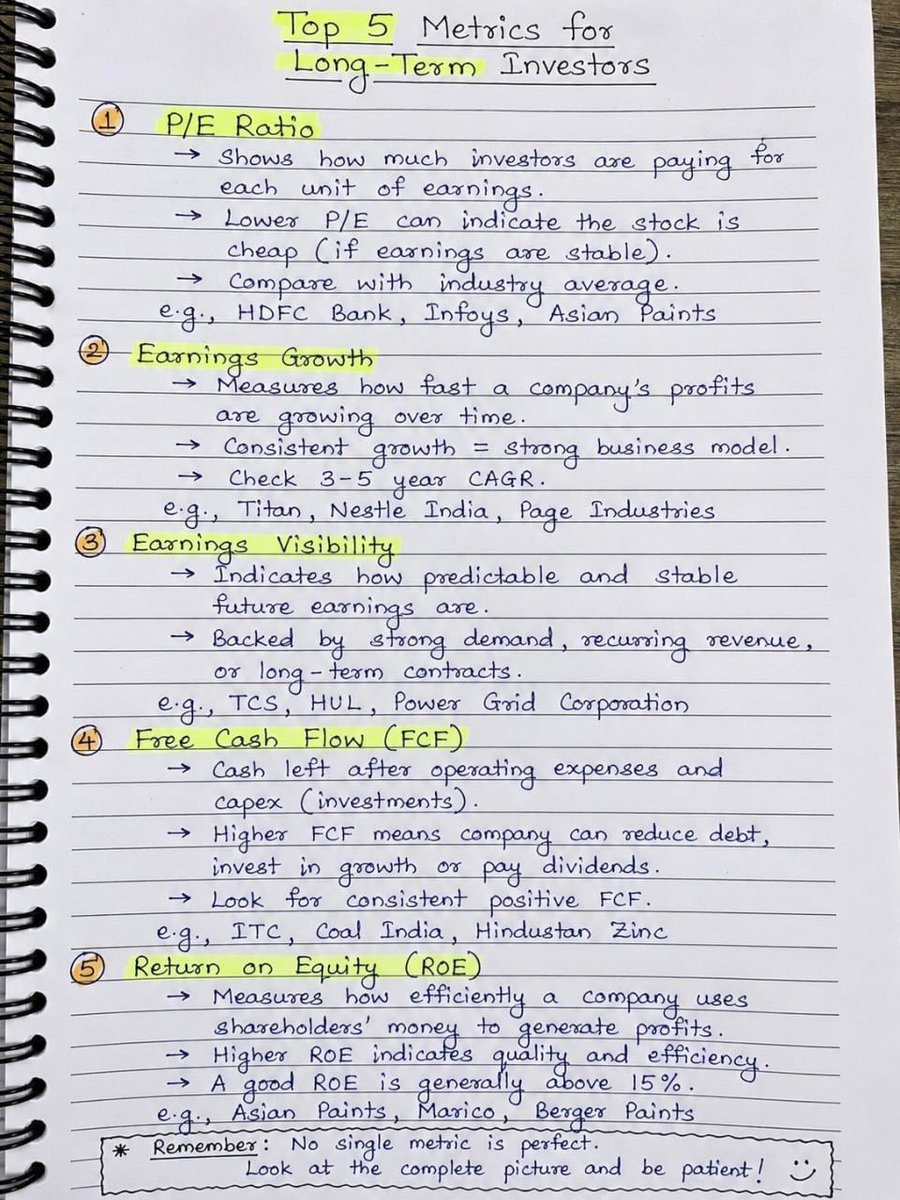 Top 5 Metrics for
Long-Term Investors
1 P/E Ratio
→ Shows how much investors are paying for
each unit of earnings.
→ Lower P/E can indicate the stock is
cheap (if earnings are stable).
→ Compare with industry average.
e.g., HDFC Bank, Infoys, Asian Paints
2 Earnings Growth
→ Measures how fast a company's profits
are growing over time.
→ Consistent growth = strong business model.
→ Check 3-5 year CAGR.
e.g., Titan, Nestle India, Page Industries
3 Earnings Visibility
→ Indicates how predictable and stable
future earnings are.
→ Backed by strong demand, recurring revenue,
or long-term contracts.
e.g., TCS, HUL, Power Grid Corporation
4 Free Cash Flow (FCF)
→ Cash left after operating expenses and
capex (investments).
→ Higher FCF means company can reduce debt,
invest in growth or pay dividends.
→ Look for consistent positive FCF.
e.g., ITC, Coal India, Hindustan Zinc
5 Return on Equity (ROE)
→ Measures how efficiently a company uses
shareholders' money to generate profits.
→ Higher ROE indicates quality and efficiency.
→ A good ROE is generally above 15%.
e.g., Asian Paints, Marico, Berger Paints
* Remember: No single metric is perfect.
Look at the complete picture and be patient!